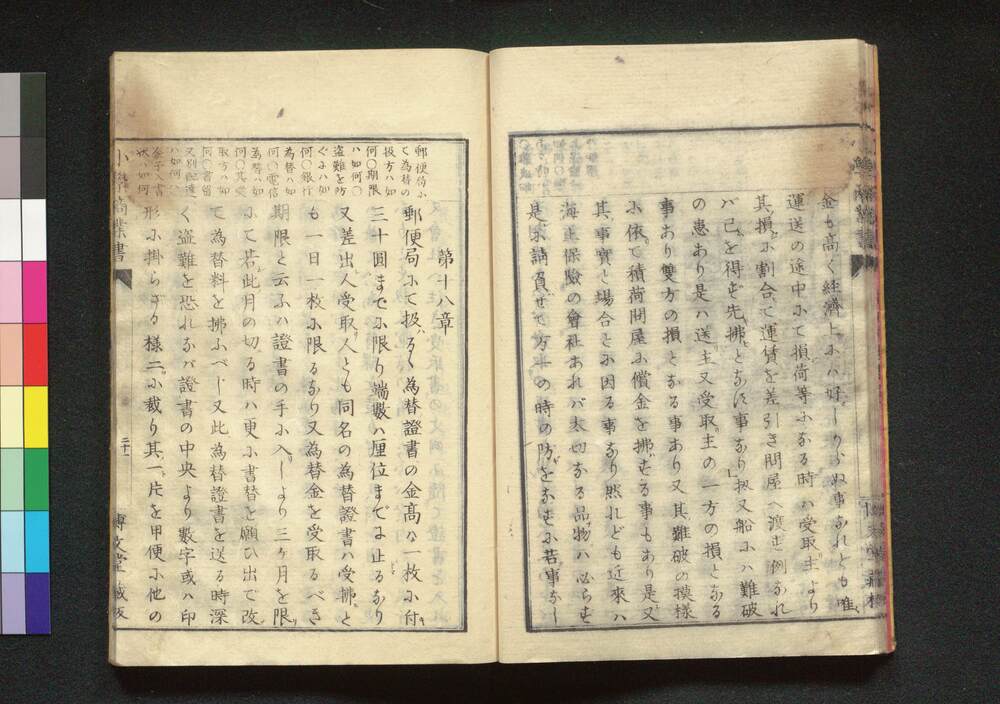 金も高く経濟上ふハ好しからぬ事なれとも唯
運送の途中ふて損荷等ふなる時ハ受取主より
其損ふ割合て運賃を差引き問屋へ渡も例なれ
バ己を得ど先拂となに事なり扨又船ふハ難破
の患あり是ハ送主又受取主の一方の損となる
事あり雙方の損となる事あり又其難破の模様
ふ依て積荷問屋ふ償金を拂もる事もあり是又
其事實と場合とふ因る事なり然れども近來ハ
海上保險の會社あれバ太切なる品物ハ必らも
是ふ請負せて万一の時の防をなもふ若事なし
第十八章
郵便局ふて扱ハるゝ為替證書の金高ハ一枚ふ付
三十圓までふ限り端數ハ厘位までふ止るなり
又差出人受取人とも同名の為替證書ハ受拂と
も一日一枚ふ限るなり又為替金を受取るべき
期限と云ふハ證書の手ふ入しより三ヶ月を限
ふて若此月の切る時ハ更ふ書替を願ひ出て改
て為替料を拂ふべし又此為替證書を送る時深
く盗難を恐れなバ證書の中央より數字或ハ印
形ふ掛らざる様二ふ裁り其一片を甲便ふ他の
郵便局ふ
て為替の
扱方ハ如
何〇期限
ハ如何〇
盗難を防
ぐふハ如
何〇銀行
為替ハ如
何〇電信
為替ハ如
何〇其受
取方ハ如
何〇書留
又別配達
ハ如何〇
金子入書
状ハ如何
小學商業書
二十一
博文堂藏板